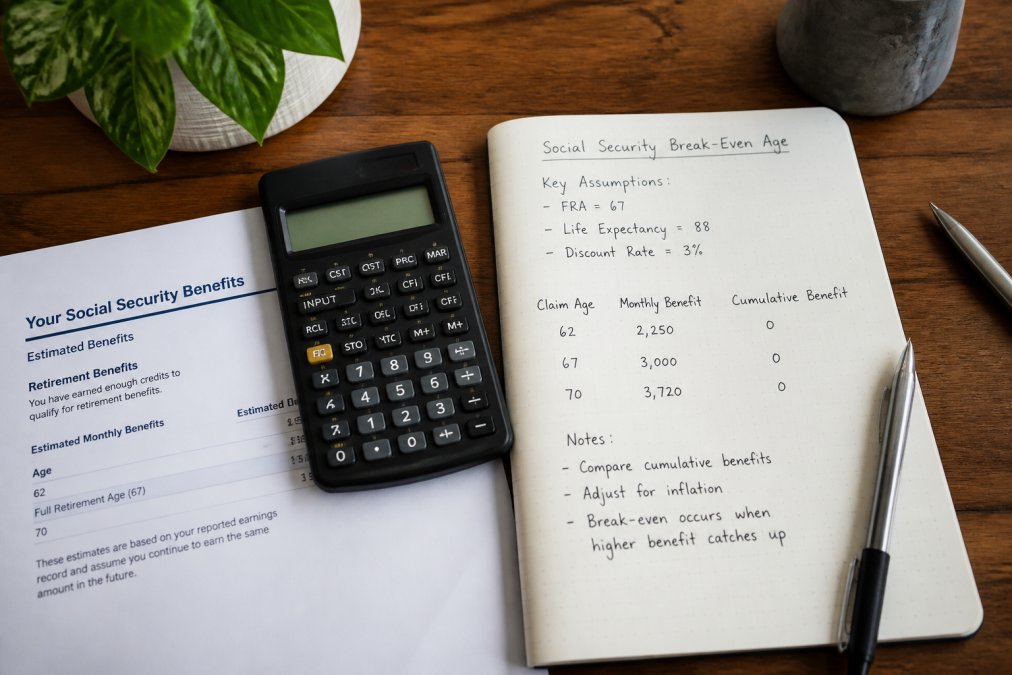 Your Social Security Benefits
Estimated Benefits
Retirement Benefits
You have earned enough credits to
qualify for retirement benefits.
Estimated Monthly Benefits
Estimated
Age
62
Full Retirement Age (67)
70
These estimates are based on your reported earnings
record and assume you continue to earn the same
amount in the future.
CST PRC MAR
INPUT CFI
RCL
STO M+ M+
7 8 9 ÷
4 5 6 ÷
1 2 3
0 · 0 −
Social Security Break-Even Age
Key Assumptions:
- FRA = 67
- Life Expectancy = 88
- Discount Rate = 3%
Claim Age Monthly Benefit Cumulative Benefit
62 2,250 0
67 3,000 0
70 3,720 0
Notes:
- Compare cumulative benefits
- Adjust for inflation
- Break-even occurs when
higher benefit catches up